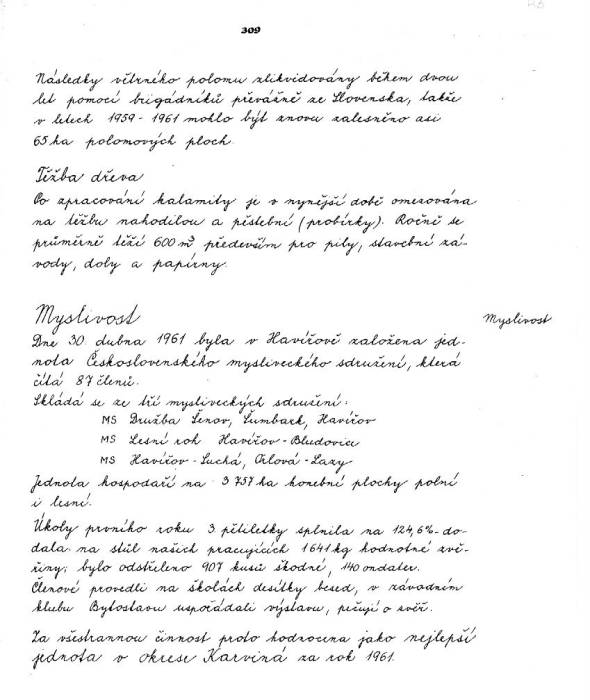 309
Následky větrného polomu zlikvidovány během dvou
let pomocí brigádníků převážně ze Slovenska, takže
v letech 1959 - 1961 mohlo být znovu zalesněno asi
65 ha polomových ploch.
Těžba dřeva
Po zpracování kalamity je v nynější době omezována
na těžbu nahodilou a pěstební (probírky). Ročně se
průměrně těží 600 m³ především pro pily, stavební zá-
vody, doly a papírny.
Myslivost
Myslivost
Dne 30. dubna 1961 byla v Havířově založena jed-
nota Československého mysliveckého sdružení, která
čítá 87 členů.
Skládá se ze tří mysliveckých sdružení:
MS Družba Šenov, Šumbark, Havířov
MS Lesní roh Havířov-Bludovice
MS Havířov-Suchá, Orlová-Lazy
Jednota hospodaří na 3757 ha honební plochy polní
i lesní.
Úkoly prvního roku 3. pětiletky splnila na 124,6%-do-
dala na stůl našich pracujících 1641 kg hodnotné zvě-
řiny; bylo odstřeleno 907 kusů škodné, 140 ondater.
Členové provedli na školách desítky besed, v závodním
klubu Bytostavu uspořádali výstavu, pečují o zvěř.
Za všestrannou činnost proto hodnocena jako nejlepší
jednota v okrese Karviná za rok 1961.